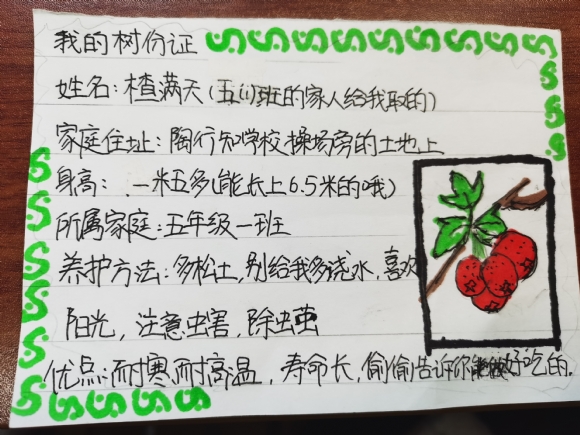 我的树份证
姓名：楂满天（五（1）班的家人给我取的）
家庭住址：陶行知学校操场旁的土地上
身高：一米五多（能长上6.5米的哦）
所属家庭：五年级一班
养护方法：多松土，别给我多浇水，喜欢
阳光，注意虫害，除虫虫
优点：耐寒耐高温，寿命长，偷偷告诉你能做好吃的.